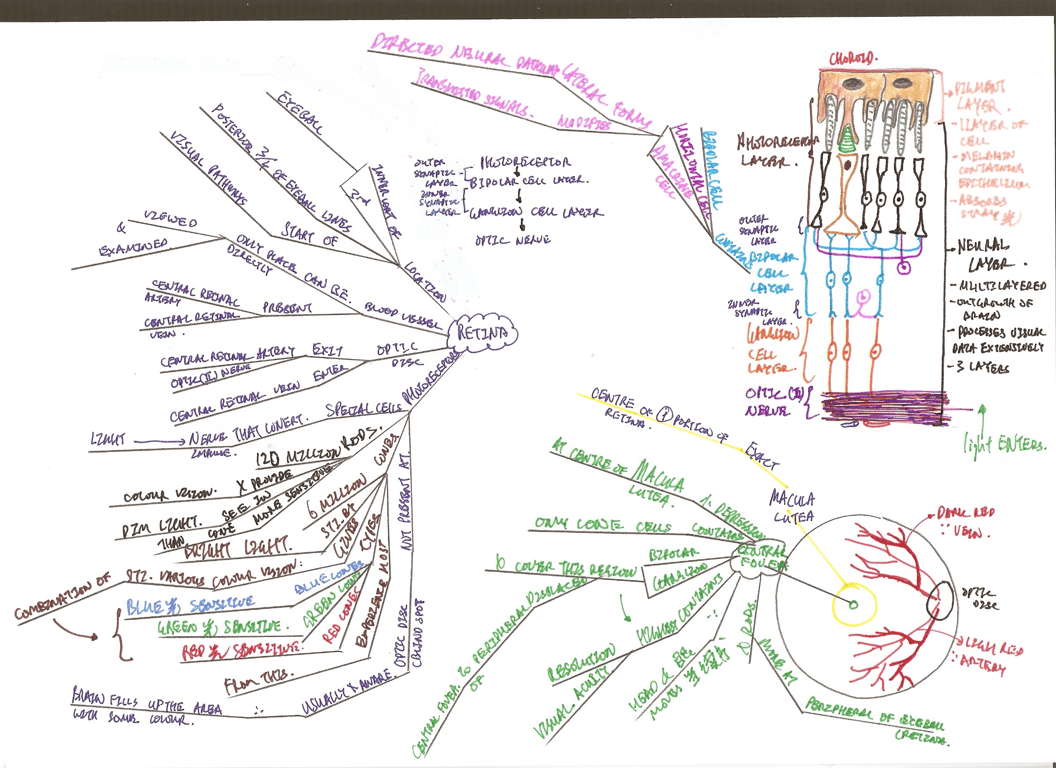 DIRECTED NEURAL PATHWAY LATERAL FORMS
TRANSMITTED SIGNALS. MODIFIES
HORIZONTAL CELL
AMACRINE CELL
BIPOLAR CELL
CONTAINS
EYEBALL
3rd
INNER COAT OF
POSTERIOR 3/4 OF EYEBALL LINES
VISUAL PATHWAYS START OF
LOCATION
VIEWED
&
EXAMINED
ONLY PLACE CAN BE
DIRECTLY
BLOOD VESSEL
CENTRAL RETINAL
ARTERY
CENTRAL RETINAL
VEIN.
PRESENT
RETINA
CENTRAL RETINAL ARTERY EXIT
OPTIC (II) NERVE
CENTRAL RETINAL VEIN ENTER
OPTIC
DISC
PHOTORECEPTORS
SPECIAL CELLS
LIGHT → NERVE THAT CONVERT.
IMPULSE.
120 MILLION RODS.
COLOUR VISION. X PROVIDE
DIM LIGHT. SEE IN
THAN CONE MORE SENSITIVE
6 MILLION CONES
BRIGHT LIGHT.
STZ. BY
3 TYPES
COMBINATION OF
STZ. VARIOUS COLOUR VISION:
BLUE SENSITIVE BLUE CONES
GREEN SENSITIVE. GREEN CONES
RED SENSITIVE. RED CONES
FROM THIS. EXPERIENCE MOST
NOT PRESENT AT
OPTIC DISC
(BLIND SPOT
USUALLY X AWARE.
∴
BRAIN FILLS UP THE AREA
WITH SOME COLOUR.
OUTER
SYNAPTIC
LAYER
INNER
SYNAPTIC
LAYER
PHOTORECEPTOR
BIPOLAR CELL LAYER.
GANGLION CELL LAYER
OPTIC NERVE
CHOROID.
PHOTORECEPTOR
LAYER.
OUTER
SYNAPTIC
LAYER
BIPOLAR
CELL
LAYER
INNER
SYNAPTIC
LAYER.
GANGLION
CELL
LAYER.
OPTIC (II)
NERVE
→ PIGMENT
LAYER.
- 1 LAYER OF
CELL
- MELANIN
CONTAINING
EPITHELIUM
- ABSORBS
STRAY
NEURAL
LAYER.
- MULTILAYERED
- OUTGROWTH OF
BRAIN
- PROCESSES VISUAL
DATA EXTENSIVELY
- 3 LAYERS
light ENTERS.
CENTRE OF PORTION OF
RETINA.
EXACT
MACULA
LUTEA
CENTRAL
FOVEA
AT CENTRE OF MACULA
LUTEA
DEPRESSION
ONLY CONE CELLS CONTAINS
BIPOLAR
GANGLION
X COVER THIS REGION
CENTRAL FOVEA TO PERIPHERAL DISPLACED
OF
HIGHEST CONTAINS
RESOLUTION
VISUAL ACUITY
∴
HEAD & EYE
MOVES
RODS.
MORE AT
PERIPHERAL OF EYEBALL
(RETINA.
DARK RED
∵ VEIN.
OPTIC
DISC
LIGHT RED
∵ ARTERY